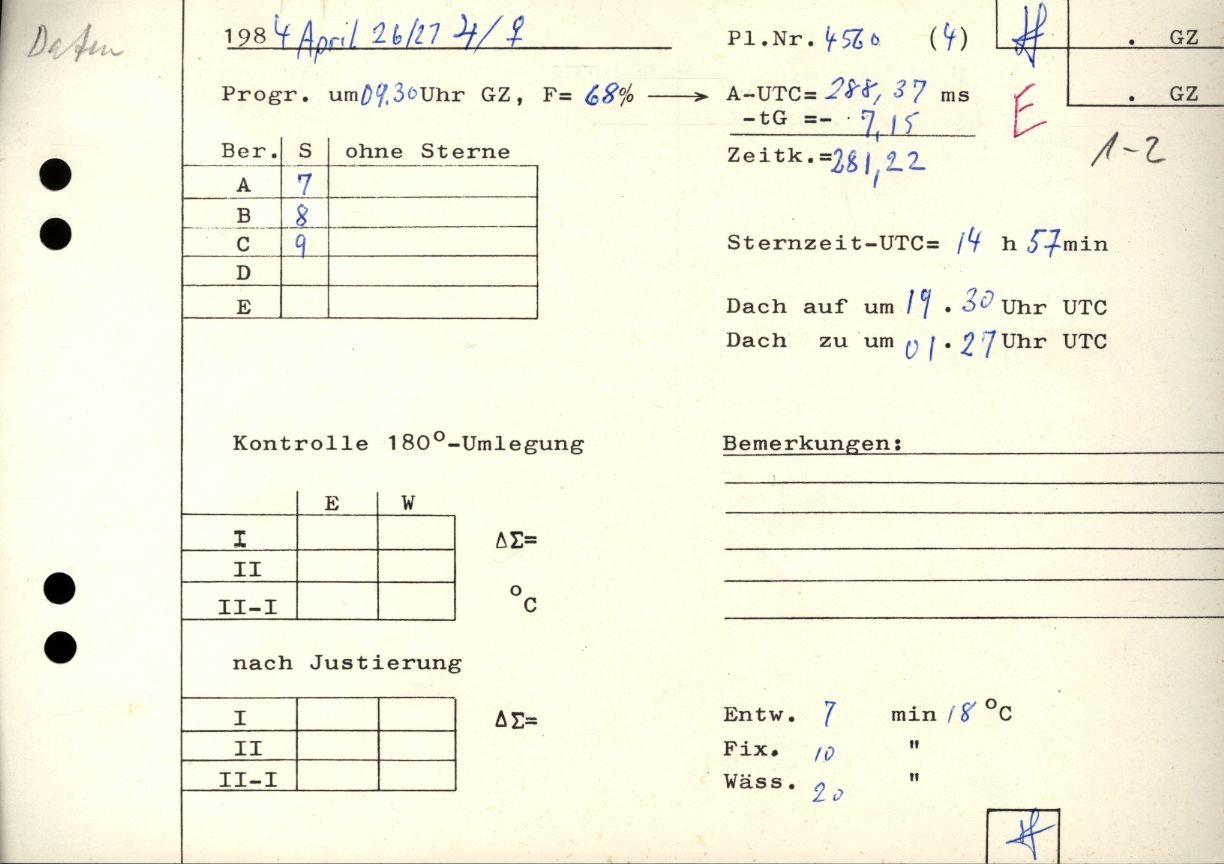 Daten
1984 April 26/27 ♃/♀
Pl.Nr. 4560 (4)
. GZ
Progr. um 09.30 Uhr GZ, F= 68% → A-UTC= 288,37 ms
. GZ
-tG =- 7,15
E
Zeitk.=281,22
1-2
Ber. S ohne Sterne
A 7
B 8
C 9
D
E
Sternzeit-UTC= 14 h 57min
Dach auf um 19.30 Uhr UTC
Dach zu um 01.27 Uhr UTC
Kontrolle 180°-Umlegung
E W
I ΔΣ=
II
II-I °C
Bemerkungen:
nach Justierung
I ΔΣ=
II
II-I
Entw. 7 min 18 °C
Fix. 10 "
Wäss. 20 "